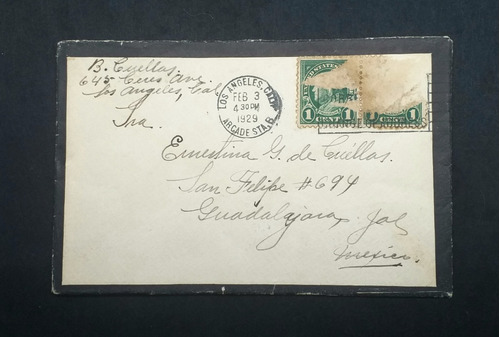 B. Cuellar
645 Ceres Ave.
Los Angeles, Cal
LOS ANGELES, CALIF.
FEB 3
4 30 PM
1929
ARCADE STA.
1 CENT 1
1
Sra.
Ernestina G. de Cuéllar.
San Felipe #694
Guadalajara, Jal
Mexico.